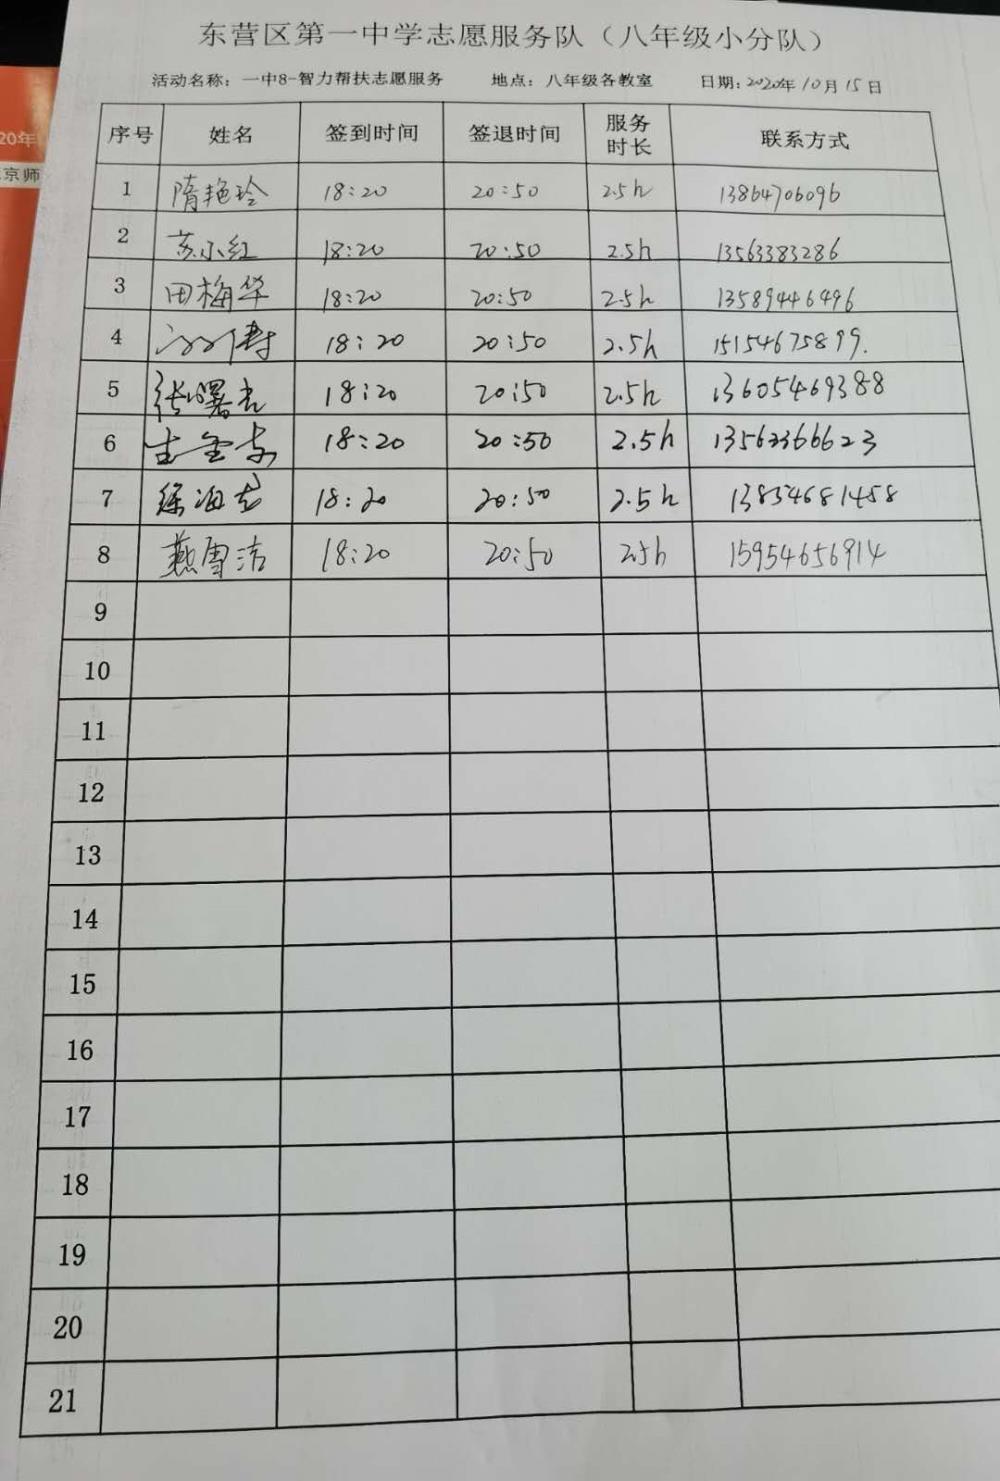 东营区第一中学志愿服务队（八年级小分队）
活动名称：一中8-智力帮扶志愿服务 地点：八年级各教室 日期：2020年10月15日
序号 姓名 签到时间 签退时间 服务时长 联系方式
1 隋艳玲 18:20 20:50 2.5h 13864706096
2 苏小红 18:20 20:50 2.5h 13563383286
3 田梅华 18:20 20:50 2.5h 13589446496
4 18:20 20:50 2.5h 15154675899.
5 张曙光 18:20 20:50 2.5h 13605469388
6 18:20 20:50 2.5h 13562366623
7 徐海龙 18:20 20:50 2.5h 13854681458
8 燕雪洁 18:20 20:50 2.5h 15954656914
9
10
11
12
13
14
15
16
17
18
19
20
21
20年
京师